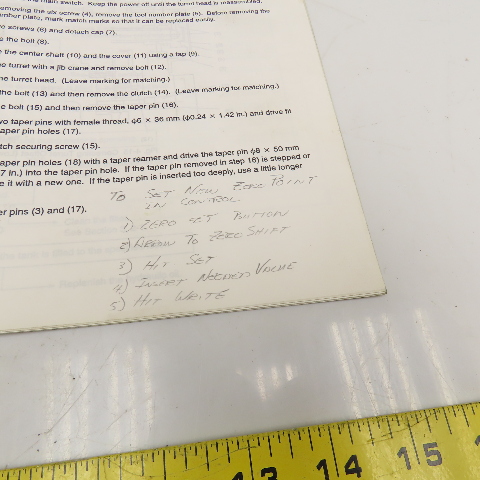 main switch. Keep the power off until the turret head is reassembled.
emoving the six screw (4), remove the tool number plate (5). Before removing the
mber plate, mark match marks so that it can be replaced easily.
e screws (6) and detach cap (7).
e the bolt (8).
e the center shaft (10) and the cover (11) using a tap (9).
e turret with a jib crane and remove bolt (12).
he turret head. (Leave marking for matching.)
the bolt (13) and then remove the clutch (14). (Leave marking for matching.)
e bolt (15) and then remove the taper pin (16).
wo taper pins with female thread, φ6 × 36 mm (φ0.24 × 1.42 in.) and drive fit
aper pin holes (17).
tch securing screw (15).
aper pin holes (18) with a taper reamer and drive the taper pin φ8 × 50 mm
7 in.) into the taper pin hole. If the taper pin removed in step 16) is stepped or
e it with a new one. If the taper pin is inserted too deeply, use a little longer
er pins (3) and (17).
TO SET NEW ZERO POINT
IN CONTROL.
1) ZERO SET BUTTON
2) ARROW TO ZERO SHIFT
3) HIT SET
4) INSERT NEEDED VALUE
5) HIT WRITE
13 14 15